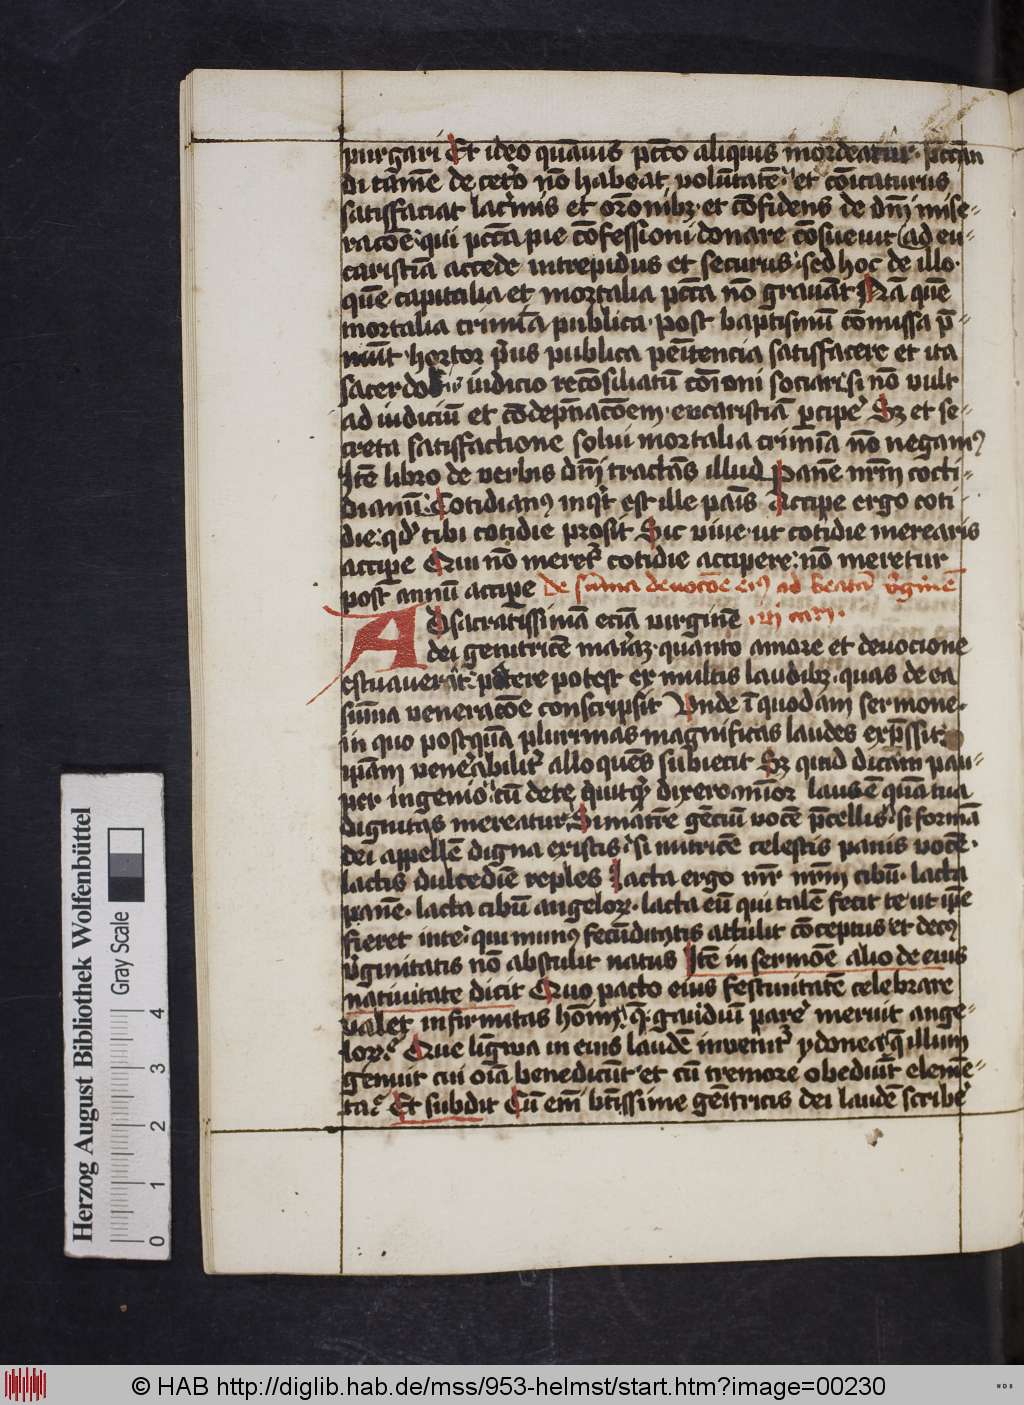 purgari Et ideo quāvis pctō aliquis mordeatur · pccān
di tamē de cetō nō habeat volūtatē · et cōicaturus
satisfaciat lacrimis et orōnibꝫ · et cōfidens de dn̄i mise-
racōe · qui pctā pie cōfessioni donare cōsuevit ad eu-
caristiā accede intrepidus et securus · sed hoc de illo ·
quē capitalia et mortalia pctā nō gravāt Nā quē
mortalia crimīa publica · post baptismū cōmissa p̄-
mūt · hortor p̄us publica penitencia satisfacere et ita
sacerdotis iudicio recōsiliatū cōioni sociari · si nō vult
ad iudiciū et cōdepnacōem · eucaristiā ꝑcipe Sꝫ et se-
creta satisfactione solui mortalia crimīa nō negamꝰ
Itē libro de verbis dn̄i tractās illud Panē nrm̄ cocti-
dianū · Cotidianꝰ inqt est ille panis Accipe ergo coti
die · qd tibi cotidie prosit Sic vive · ut cotidie merearis
accipe Qui nō meret cotidie accipere · nō meretur
post annū accipe De sūma devocōe eiꝰ ad beatā v̄ginē
Ad sacratissimā eciā virginē
dei genitricē mariā · quanto amore et devocione
estuaverit · patere potest ex multis laudibꝫ · quas de ea
sūma veneracōe conscripsit Unde ī quodam sermone ·
in quo postquā plurimas magnificas laudes exp̄ssit ·
ipam venerabilit alloquēs subiecit Sꝫ quid dicam pau-
per ingenio · cū de te quitqd dixero minor laus ē quā tua
dignitas mereatur Si matrē gēciū vocē p̄cellis · si formā
dei appellē digna existis · si nutricē celestis panis vocē ·
lactis dulcedīe reples Lacta ergo mr̄ nrm̄ cibū · lacta
panē · lacta cibū angeloꝝ · lacta eū qui talē fecit te ut ipe
fieret in te · qui munꝰ fecūditatis attulit cōceptus et decꝰ
v̄ginitatis nō abstulit natus Itē in sermōe alio de eius
nativitate dicit Quo pacto eius festivitatē celebrare
valet infirmitas homīs · q̄ gavidiuī parē meruit ange-
loꝝ · Que ligwa in eius laudē invenit ydonea · q̄ illum
genuit cui oīa benedicūt · et cū tremore obediūt elemē-
ta · Et subdit Cū em̄ btissime gēitricis dei laudē scribē
© HAB http://diglib.hab.de/mss/953-helmst/start.htm?image=00230
Herzog August Bibliothek Wolfenbüttel
Gray Scale
0 1 2 3 4